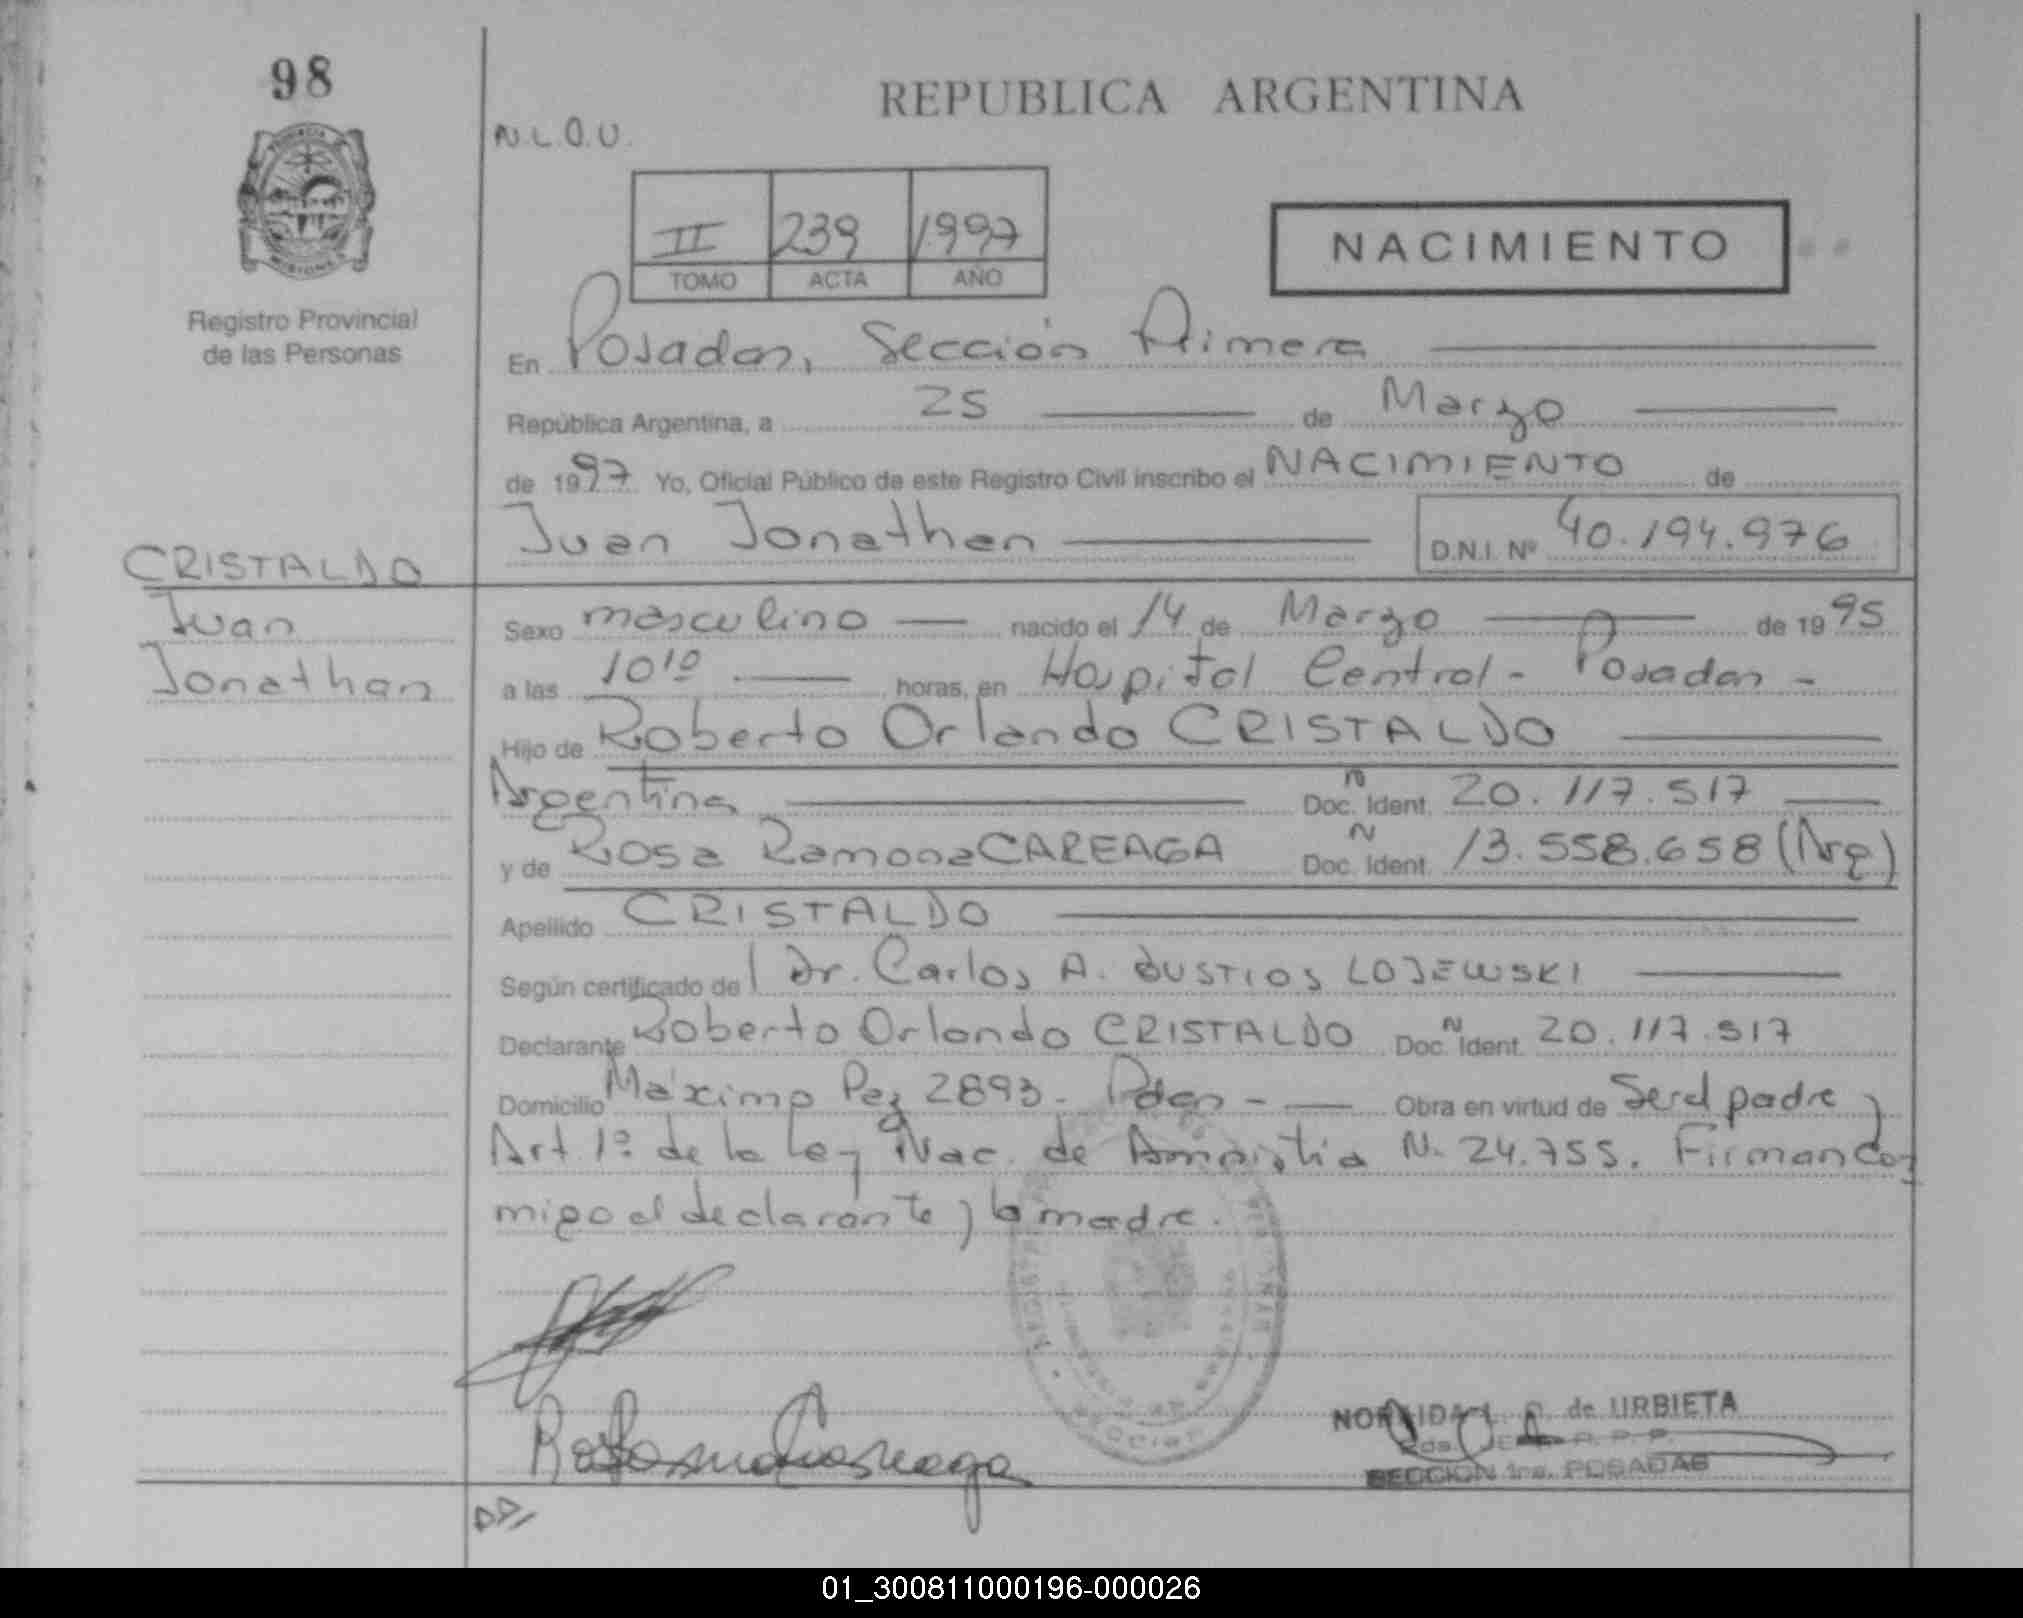 98
REPUBLICA ARGENTINA
N.L.O.U.
II 239 1997
TOMO ACTA AÑO
NACIMIENTO
Registro Provincial
de las Personas
En Posadas, Sección Primera
República Argentina, a 25 de Marzo
de 1997 Yo, Oficial Público de este Registro Civil inscribo el NACIMIENTO de
Juan Jonathan D.N.I. Nº 40.194.976
CRISTALDO
Juan
Jonathan
Sexo masculino nacido el 14 de Marzo de 1995
a las 10¹⁰ horas, en Hospital Central - Posadas -
Hijo de Roberto Orlando CRISTALDO
Argentina Doc. Ident. N 20.117.517
y de Rosa Ramona CAREAGA Doc. Ident. N 13.558.658 (Arg)
Apellido CRISTALDO
Según certificado del Dr. Carlos A. BUSTIOS LOJEWSKI
Declarante Roberto Orlando CRISTALDO Doc. Ident. N 20.117.517
Domicilio Máximo Paz 2893. Pdas - Obra en virtud de Ser el padre y
Art. 1º de la Ley Nac. de Amnistía N. 24.755. Firman con
migo el declarante y la madre.
Rosa Ramona Careaga
de URBIETA
R. P. P.
SECCION 1ra. POSADAS
01_300811000196-000026